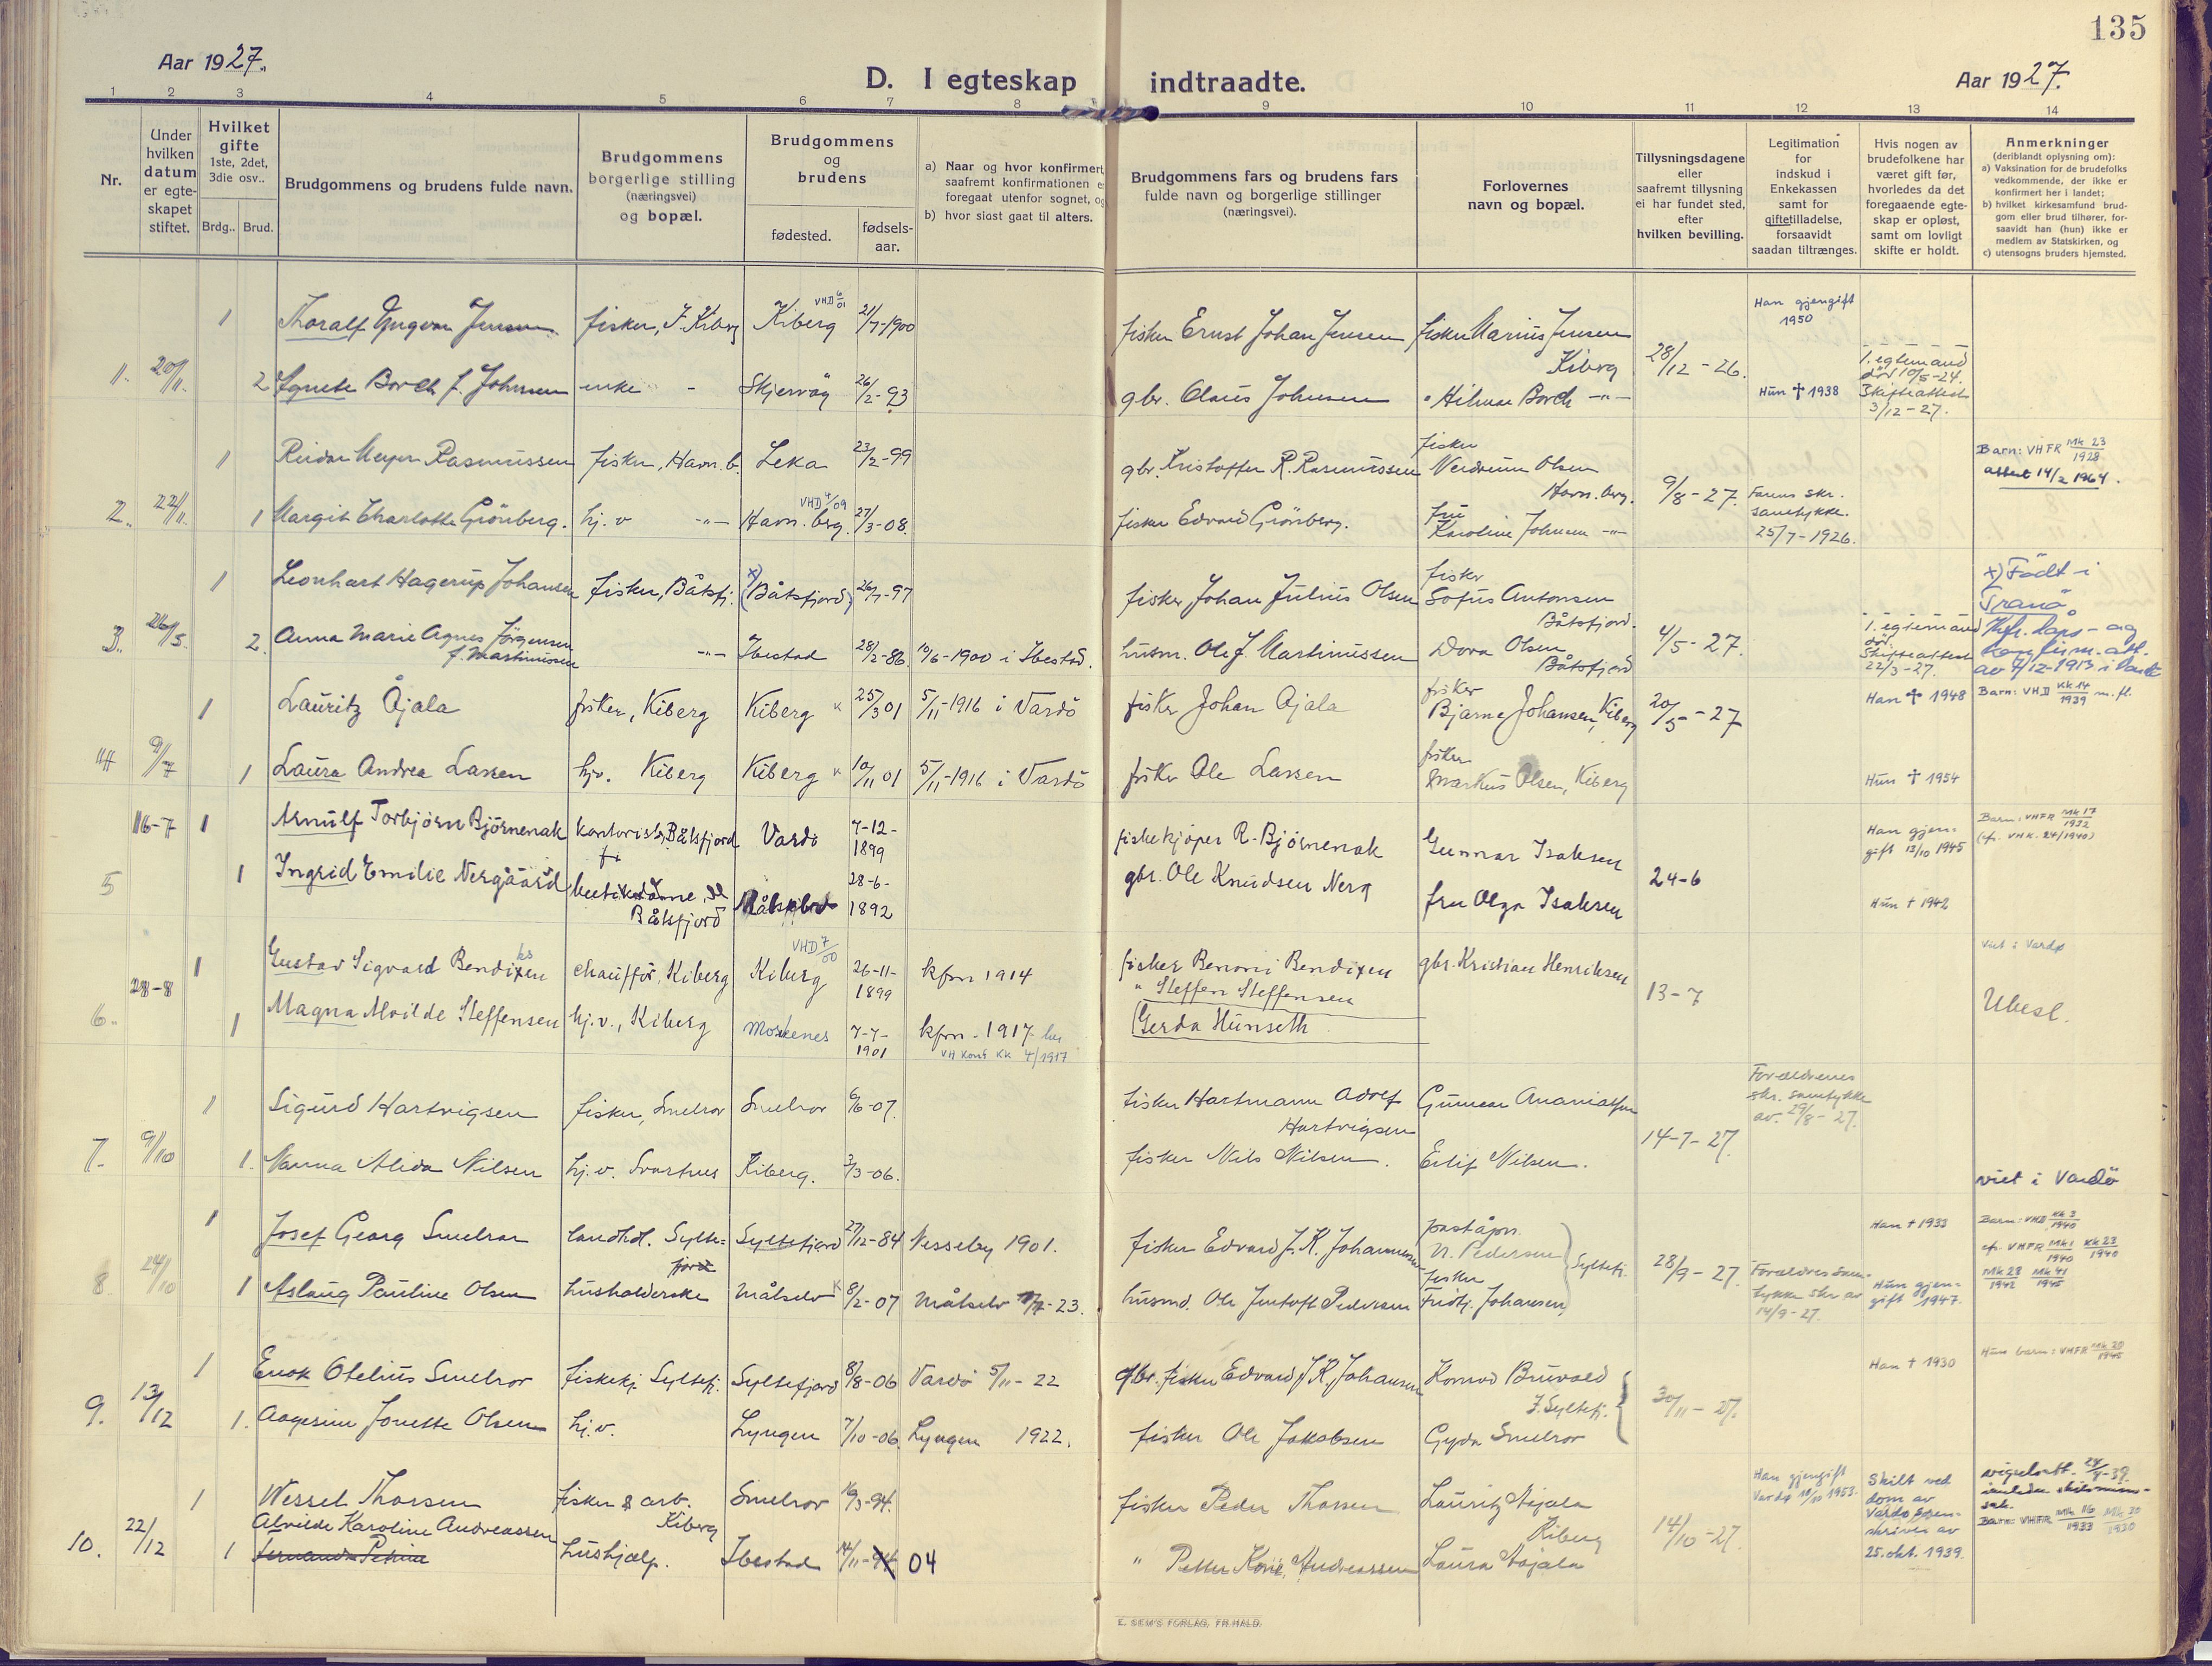 135
Aar 1927.
D. I egteskap indtraadte.
Aar 1927.
1 2 3 4 5 6 7 8 9 10 11 12 13 14
Nr.
Under hvilken datum er egteskapet stiftet.
Hvilket gifte 1ste, 2det, 3die osv..
Brdg.. Brud.
Brudgommens og brudens fulde navn.
Brudgommens borgerlige stilling (næringsvei) og bopæl.
Brudgommens og brudens
fødested. fødselsaar.
a) Naar og hvor konfirmert saafremt konfirmationen er foregaat utenfor sognet, og
b) hvor sidst gaat til alters.
Brudgommens fars og brudens fars fulde navn og borgerlige stillinger (næringsvei).
Forlovernes navn og bopæl.
Tillysningsdagene eller saafremt tillysning ei har fundet sted, efter hvilken bevilling.
Legitimation for indskud i Enkekassen samt for giftetilladelse, forsaavidt saadan tiltrænges.
Hvis nogen av brudefolkene har været gift før, hvorledes da det foregaaende egteskap er opløst, samt om lovligt skifte er holdt.
Anmerkninger (deriblandt oplysning om):
a) Vaksination for de brudefolks vedkommende, der ikke er konfirmert her i landet;
b) hvilket kirkesamfund brudgom eller brud tilhører, forsaavidt han (hun) ikke er medlem av Statskirken, og
c) utensogns bruders hjemsted.
1 Thoralf Yngvar Jensen fisker, I. Kiberg Kiberg VHD 6/01 21/7-1900 fisker Ernst Johan Jensen fisker Marius Jensen Kiberg Han gjengift 1950
1. 20/11. 2 Agnete Borch f. Johnsen enke - Skjervøy 26/2-93 gbr. Claus Johnsen " Hilmar Borch -"- 28/12-26. Hun † 1938 1. egtemand død 10/5-24. Skifteattest 3/12-27.
1 Reidar Meyer Rasmussen fisker, Havn.b. Leka 23/2-99 gbr. Kristoffer R. Rasmussen fisker Olsen Havn.berg. Barn: VHFR Mk 23/1928 attest 14/2 1964.
2. 22/11. 1 Margit Charlotte Grönberg. hj. v -"- Havn.berg. VHD 4/09 27/3-08. fisker Edvard Grönberg. fru Karoline Johnsen -"- 9/8-27. Farens skr. samtykke. 25/7-1926.
1 Leonhart Hagerup Johansen fisker, Båtsfj. x) (Båtsfjord) 26/7-97 fisker Johan Julius Olsen fisker Sofus Antonsen Båtsfjord. x) Född i Tranö.
3. 26/5. 2. Anna Marie Agnes Jörgensen f. Martinussen -"- Ibestad 28/2-86. 10/6-1900 i Ibestad. husm. Ole J. Martinussen Dora Olsen Båtsfjord 4/5-27. 1. egtemand död Skifteattest 22/3-27.
1 Lauritz Åjala fisker, Kiberg Kiberg 25/3 01 5/11-1916 i Vardö fisker Johan Ajala fisker Bjarne Johansen, Kiberg 20/5-27 Han † 1948 Barn: VHD KK 14/1939 m.fl.
4 9/7 1 Laura Andrea Larsen hjv. Kiberg Kiberg 10/11 01 5/11-1916 i Vardö fisker Ole Larsen fisker Markus Olsen, Kiberg Hun † 1954
16-7 1 Arnulf Torbjörn Björnenak kontorist, Båtsfjord Vardö 7-12-1899 fiskekjöper R. Björnenak Gunnar Isaksen Han gjengift 13/10 1945 Barn: VHFR Mk 17/1932 (cf. VHK. 24/1940)
5 1 Ingrid Emilie Nergåård Båtsfjord 28-6-1892 gbr. Ole Knudsen Nerg fru Olga Isaksen 24-6 Hun † 1942
1 Gustav Sigvard Bendixen ks chauffør, Kiberg Kiberg VHD 7/00 26-11-1899 kfm 1914 fisker Benoni Bendixen gbr. Kristian Henriksen viet i Vardø
6. 28-8 1 Magna Alvilde Steffensen hj.v., Kiberg Moskenes 7-7-1901 kfm. 1917 her VH Konf KK 4/1917 " Steffen Steffensen Gerda Hunseth 13-7 Ubesl.
1 Sigurd Hartvigsen fisker, Smelror Smelror 6/6-07. fisker Hartmann Adolf Hartvigsen Gunnar Ananiassen Forældrenes skr. samtykke av. 29/8-27.
7. 9/10 1. Nanna Alida Nilsen hj.v. Svartnes Kiberg. 3/3-06. fisker Nils Nilsen. Eilif Nilsen. 14-7-27. viet i Vardö
1 Josef Georg Smelror landhdl. Syltefjord Syltefjord 27/12-84 Nesseby 1901. fisker Edvard J.K. Johannessen poståpn. N. Pedersen Syltefj. Han † 1933 Barn: VHD KK 3/1940
8. 24/10 1 Aslaug Pauline Olsen husholderske Målselv 8/2-07 Målselv 1/7-23. husmd. Ole Jentoft Pedersen fisker Fridtj. Johansen 28/9-27. Forældres samtykke skr av 14/9-27. Hun gjengift 1947. cf. VHFR Mk 1/1940 KK 23/1940 Mk 28/1942 Mk 41/1945
1 Enok Otelius Smelror fiskekj. Syltefj. Syltefjord 8/8-06 Vardö 5/11-22 gbr. fisker Edvard J.K. Johansen Konrad Bruvold I. Syltefj. Han † 1930 Hun barn: VHFR Mk 20/1945
9. 13/12 1. Aagesine Jonette Olsen hj.v. Lyngen 7/10-06. Lyngen 1922. fisker Ole Jakobsen Gyda Smelror 30/11-27.
1 Wessel Thorsen fisker & arb. Kiberg Smelror 19/3-94. fisker Peder Thorsen Lauritz Aijala Kiberg Han gjengift Vardø 11/10 1953. Skilt ved dom av Vardø sorenskriver av 25. okt. 1939.
10. 22/12 1 Alvilde Karoline Andreassen Fernanda Petrine hushjælp. Ibestad 14/11-94 04 " Petter Andreassen Laura Aijala 14/10-27. Barn: VHFR Mk 16/1933 Mk 30/1930
E. SEM'S FORLAG, FR.HALD.